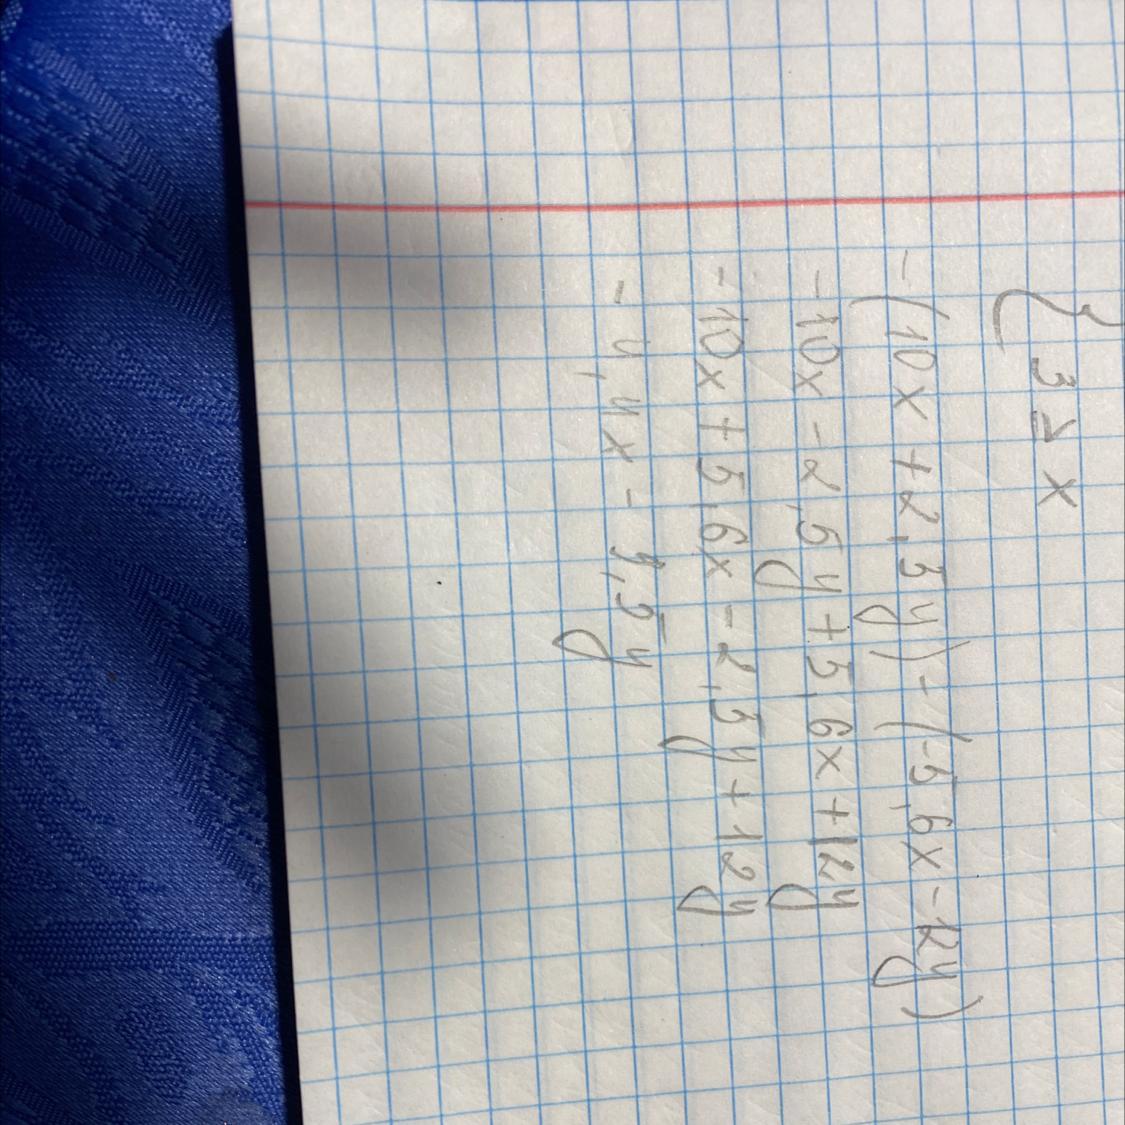 { 3 ≥ x
-(10x + 2,5y) - (-5,6x - 12y)
-10x - 2,5y + 5,6x + 12y
-10x + 5,6x - 2,5y + 12y
-4,4x - 9,5y